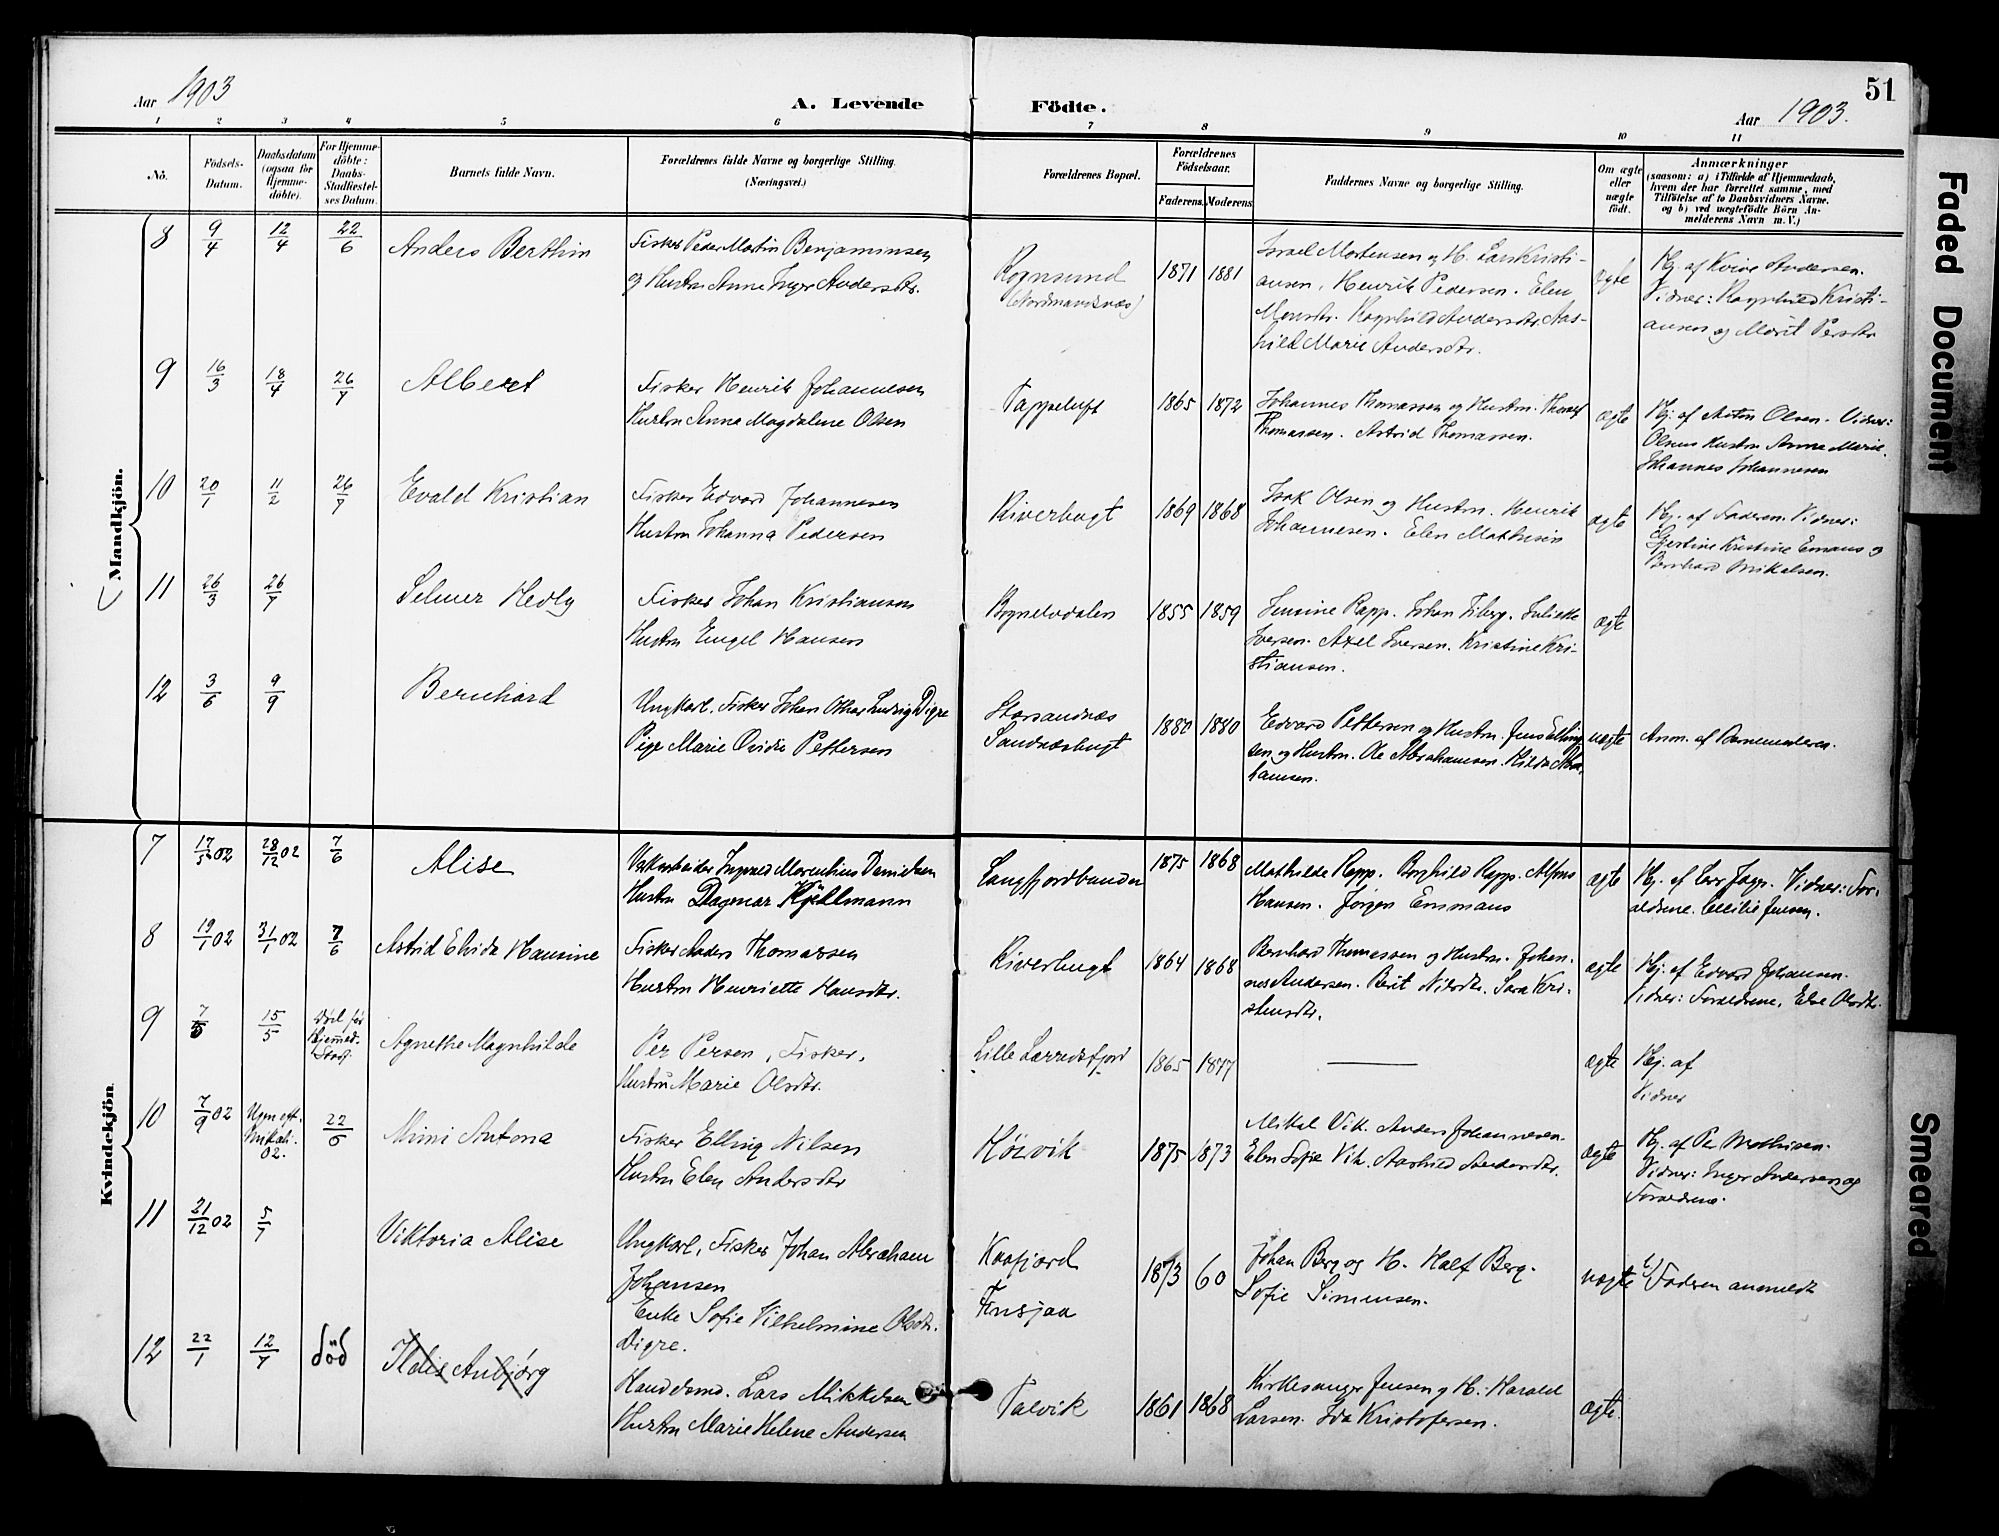 51
Aar 1903
A. Levende
Födte.
Aar 1903.
1 2 3 4 5 6 7 8 9 10 11
No.
Födsels-Datum.
Daabsdatum (ogsaa for Hjemme-döbte).
For Hjemme-döbte: Daabs-Stadfæstel-ses Datum.
Barnets fulde Navn.
Forældrenes fulde Navne og borgerlige Stilling.
(Næringsvei.)
Forældrenes Bopæl.
Forældrenes Födselsaar.
Faderens. Moderens.
Faddernes Navne og borgerlige Stilling.
Om ægte eller uægte födt.
Anmærkninger
(saasom: a) i Tilfælde af Hjemmedaab,
hvem der har forrettet samme, med
Tilföielse af to Daabsvidners Navne.
og b) ved uægtefödte Börn An-
melderens Navn m. V.)
Mandkjön.
8 9/4 12/4 22/6 Anders Berthin
Fisker Peder Martin Benjaminsen
og Hustru Anne Inger Andersdtr.
Rognsund
(Nordmandsnæs)
1871 1881
Israel Mortensen og H. Lars Kristi-
ansen, Henrik Pedersen. Elen
Monsdtr. Ragnhild Andersdtr. Aas-
hild Marie Andersdtr.
ægte
Hj. af Kvive Andersen.
Vidner: Ragnhild Kristi-
ansen og Marit Persdtr
9 16/3 18/4 26/7 Albert
Fisker Henrik Johannesen
Hustru Anna Magdalene Olsen
Tappeluft
1865 1872
Johannes Thomassen og Hustru. Thoralf
Thomassen. Astrid Thomassen.
ægte
Hj. af Anton Olsen. Vidner:
Olsens Hustru Anne Marie.
Johannes Johannesen
10 20/1 11/2 26/7 Evald Kristian
Fisker Edvard Johannesen
Hustru Johanna Pedersen
Riverbugt
1869 1868
Isak Olsen og Hustru. Henrik
Johannesen. Elen Mathisen
ægte
Hj. af Faderen. Vidner:
Gjertine Kristine Emaus og
Bernhard Mikalsen.
11 26/3 26/7 Selmer Hedly
Fisker Johan Kristiansen
Hustru Engel Hansen
Bognelvdalen
1855 1859
Jensine Rapp. Johan Iberg. Juliette
Iversen. Axel Iversen. Kristine Kri-
stiansen.
ægte
12 3/6 9/9 Bernhard
Ungkarl. Fisker Johan Othar Ludvig Digre
Pige Marie Ovidie Pettersen
Storsandnæs
Sandnæsbugt
1880 1880
Edvard Pettersen og Hustru. Jens Elling-
sen og Hustru. Ole Abrahamsen. Hilda Abra-
hamsen.
uægte
Anm. af Barnemoderen.
Kvindekjön.
7 17/5 02 28/12 02 7/6 Alise
Ingvald Morentius Danielsen
Hustru Dagmar Kjellmann
Langfjordbunden
1875 1868
Mathilde Rapp. Borghild Rapp. Alfons
Hansen. Jørgen Emmaus
ægte
Hj. af Lars Jags. Vidner: For-
ældrene. Ellilie Jensen.
8 19/1 02 31/1 02 7/6 Astrid Elvida Hansine
Fisker Anders Thomassen
Hustru Henriette Hansdtr.
Riverbugt
1864 1868
Bernhard Thomassen og Hustru. Johan-
nes Andersen. Berit Nilsdtr. Sara Kri-
stensdtr.
ægte
Hj. af Edvard Johansen.
Vidner: Forældrene, Else Olsdtr.
9 7/5 15/5 Død før Hjemmed. Stadf. Agnethe Magnhilde
Per Persen, Fisker,
Hustru Marie Olsdtr.
Lille Lerredsfjord
1865 1877
ægte
Hj. af
Vidner
10 7/9 02 Ugen eft. Mikali. 02. 22/6 Mimi Antona
Fisker Elling Nilsen
Hustru Elen Andersdtr
Hørvik
1875 1873
Mikal Vik. Anders Johannesen.
Elen Sofie Vik. Aashild Andersdtr.
ægte
Hj. af Per Mathisen.
Vidner: Inger Andersen og
Forældrene.
11 21/12 02 5/7 Viktoria Alise
Ungkarl, Fisker Johan Abraham
Johansen
Enke Sofie Vilhelmine Olsdtr.
Digre.
Kaafjord
1873 60
Johan Berg og H. Half Berg.
Sofie Simensen.
uægte
Faderen anmeldt
12 22/1 12/7 död Anbjørg
Handelsmd. Lars Mikkelsen
Hustru Marie Helene Andersen
Talvik
1861 1868
Kirkesanger Jensen og H. Harald
Larsen. Ida Kristofersen.
ægte.
Faded Document
Smeared